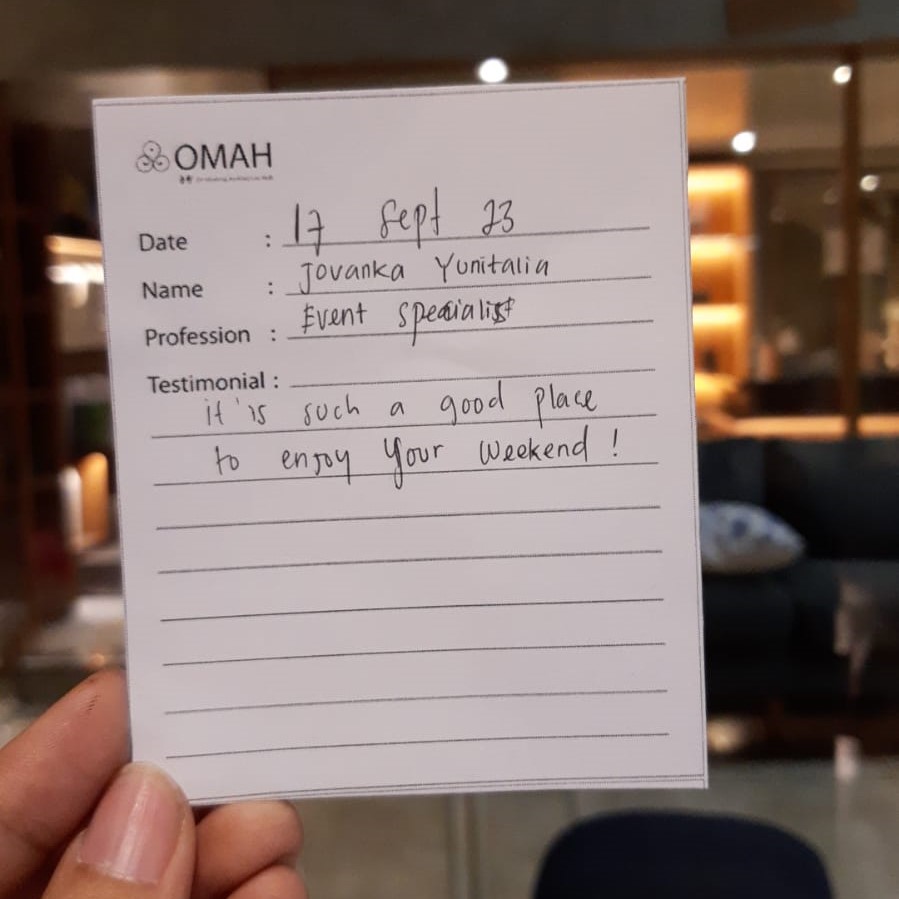 OMAH
Date : 17 Sept 23
Name : Jovanka Yunitalia
Profession : Event specialist
Testimonial :
it's such a good place
to enjoy your weekend !